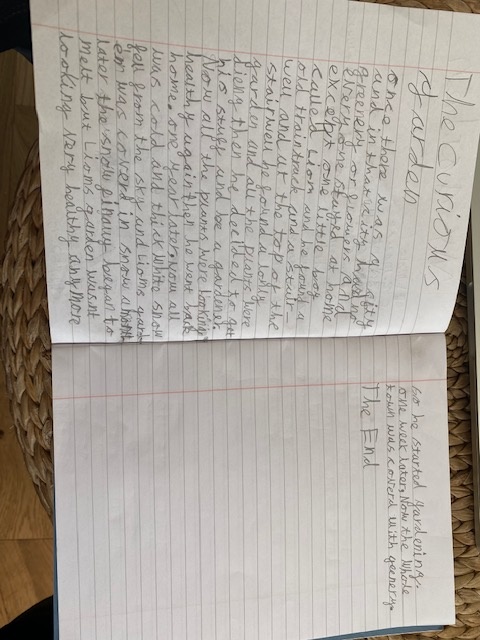 The curious
garden
once there was a city
and in that city had no
greenery or flowers and
every one stayed at home
except one little boy
called Liom and he found a
old train track and a stair-
well and at the top of the
stairwell he found a lonly
garden and all the plants were
dieing then he decided to get
his stuff and be a gardener
Now all the plants were looking
healthy again then he went back
home. one year later. now all
was cold and thick white snow
fell from the sky and Lioms gard
en was coverd in snow a month
later the snow finaly began to
melt but Lioms garden wasnt
looking very healthy any more
so he started gardening.
one week later. Now the whole
town was coverd with greenery.
The End